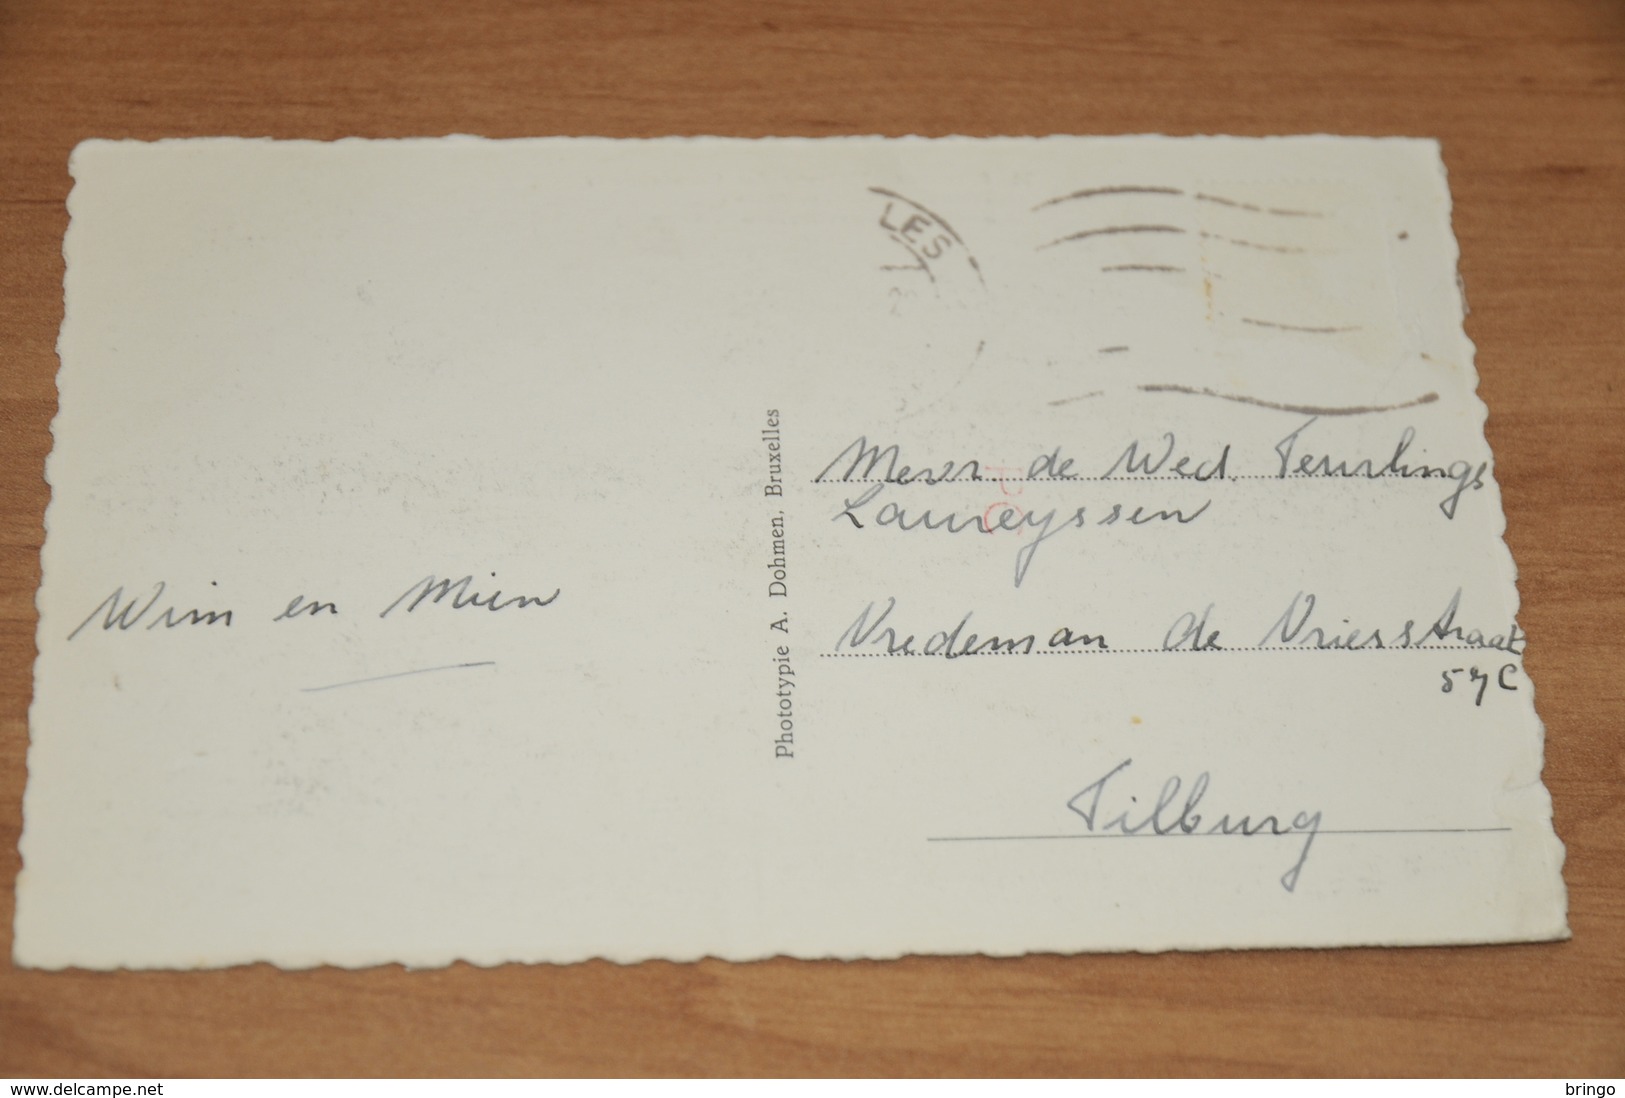 LES
Wim en Mien
Phototypie A. Dohmen, Bruxelles
Mevr. de Wed. Teurlings
Laureyssen
Vredeman de Vriesstraat
57C
Tilburg
www.delcampe.net
bringo